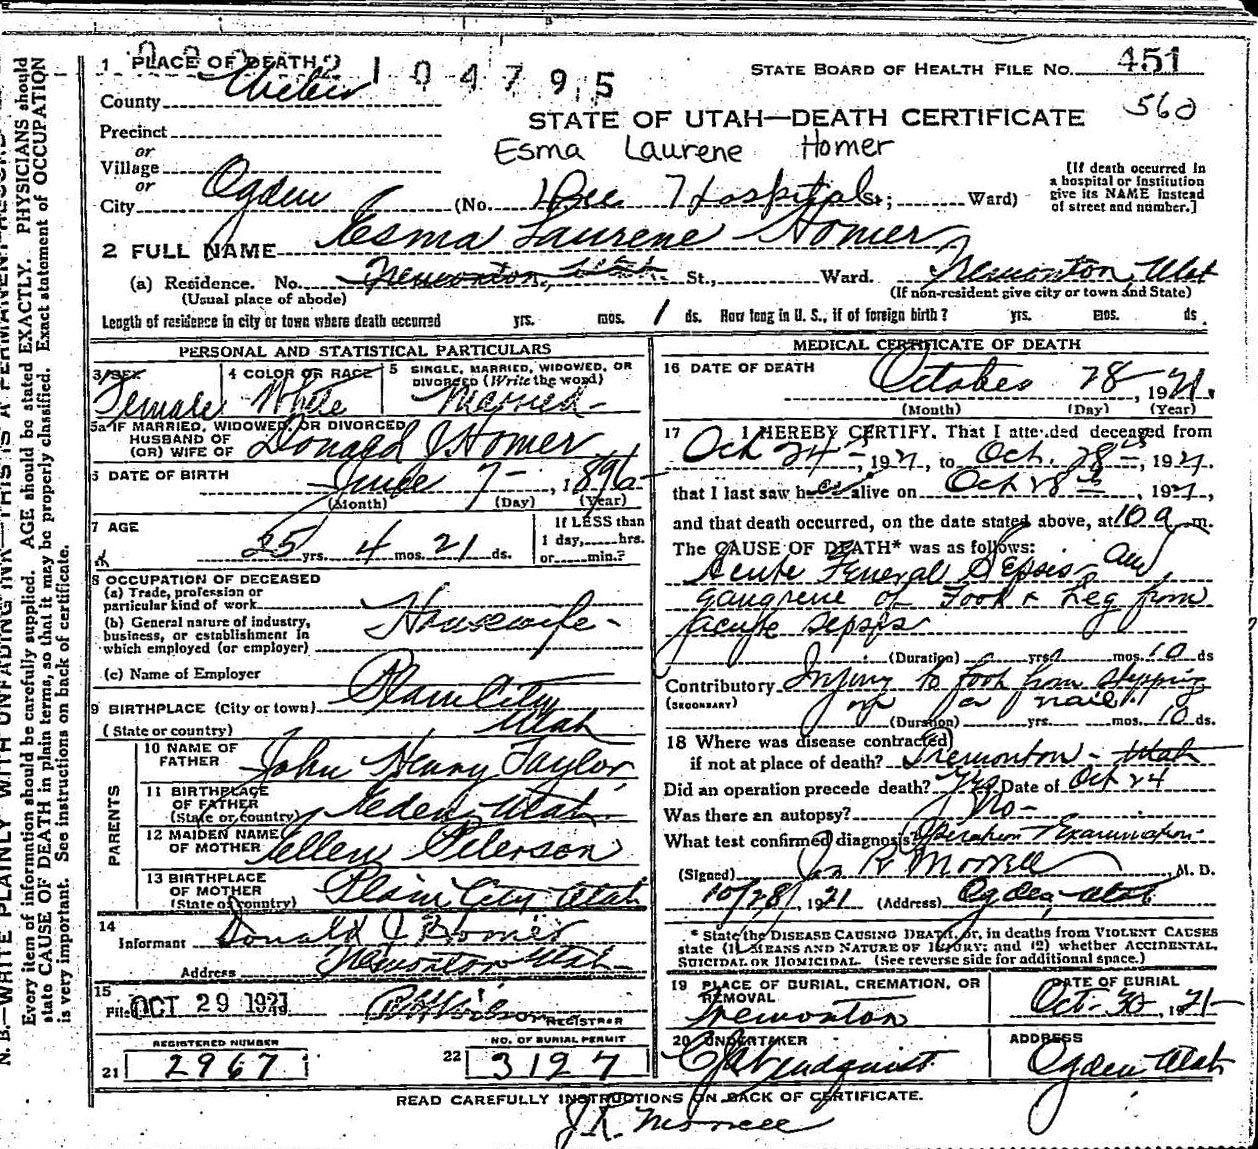 1 PLACE OF DEATH 104795
STATE BOARD OF HEALTH FILE No. 451
County Weber
560
STATE OF UTAH—DEATH CERTIFICATE
Precinct
or
Esma Laurene Homer
Village
or
City Ogden (No. Dee Hospital St.; Ward)
[If death occurred in
a hospital or institution
give its NAME instead
of street and number.]
2 FULL NAME Esma Laurene Homer
(a) Residence. No. Tremonton, Utah St., Ward. Tremonton, Utah
(Usual place of abode) (If non-resident give city or town and State)
Length of residence in city or town where death occurred yrs. mos. 1 ds. How long in U. S., if of foreign birth? yrs. mos. ds.
PERSONAL AND STATISTICAL PARTICULARS
3 SEX 4 COLOR OR RACE 5 SINGLE, MARRIED, WIDOWED, OR
DIVORCED (Write the word)
Female White Married
5a IF MARRIED, WIDOWED, OR DIVORCED
HUSBAND OF
(OR) WIFE OF Donald J Homer
6 DATE OF BIRTH June 7 - , 1896
(Month) (Day) (Year)
7 AGE 25 yrs. 4 mos. 21 ds.
If LESS than
1 day, hrs.
or min.?
8 OCCUPATION OF DECEASED
(a) Trade, profession or
particular kind of work
(b) General nature of industry,
business, or establishment in
which employed (or employer)
Housewife -
(c) Name of Employer
9 BIRTHPLACE (City or town) Plain City
(State or country) Utah
PARENTS
10 NAME OF
FATHER John Henry Taylor
11 BIRTHPLACE
OF FATHER
(State or country) Eden, Utah
12 MAIDEN NAME
OF MOTHER Ellen Peterson
13 BIRTHPLACE
OF MOTHER
(State or country) Plain City Utah
14
Informant Donald J Homer
Address Tremonton Utah
15
Filed OCT 29 1921 REGISTRAR
REGISTERED NUMBER
21 2967
NO. OF BURIAL PERMIT
22 3197
MEDICAL CERTIFICATE OF DEATH
16 DATE OF DEATH October 28, 1921.
(Month) (Day) (Year)
17 I HEREBY CERTIFY, That I attended deceased from
Oct 24th, 1921, to Oct. 28th, 1921.
that I last saw her alive on Oct 28th, 1921,
and that death occurred, on the date stated above, at 10 a. m.
The CAUSE OF DEATH* was as follows:
Acute General Sepsis and
gangrene of Foot & Leg from
acute sepsis
(Duration) yrs. mos. 10 ds
Contributory Injury to foot from stepping
(SECONDARY) on a nail.
(Duration) yrs. mos. 10 ds.
18 Where was disease contracted
if not at place of death? Tremonton - Utah
Did an operation precede death? Yes Date of Oct 24
Was there an autopsy? No -
What test confirmed diagnosis? Operation Examination -
(Signed) Jn R Morrell, M. D.
10/28, 1921 (Address) Ogden, Utah
* State the DISEASE CAUSING DEATH, or, in deaths from VIOLENT CAUSES
state (1) MEANS AND NATURE OF INJURY; and (2) whether ACCIDENTAL,
SUICIDAL OR HOMICIDAL. (See reverse side for additional space.)
19 PLACE OF BURIAL, CREMATION, OR
REMOVAL
Tremonton
DATE OF BURIAL
Oct. 30, 1921
20 UNDERTAKER
Lindquist
ADDRESS
Ogden Utah
READ CAREFULLY INSTRUCTIONS ON BACK OF CERTIFICATE.
J. R. Morrell
N. B.—WRITE PLAINLY WITH UNFADING INK—THIS IS A PERMANENT RECORD
Every item of information should be carefully supplied. AGE should be stated EXACTLY. PHYSICIANS should
state CAUSE OF DEATH in plain terms, so that it may be properly classified. Exact statement of OCCUPATION
is very important. See instructions on back of certificate.